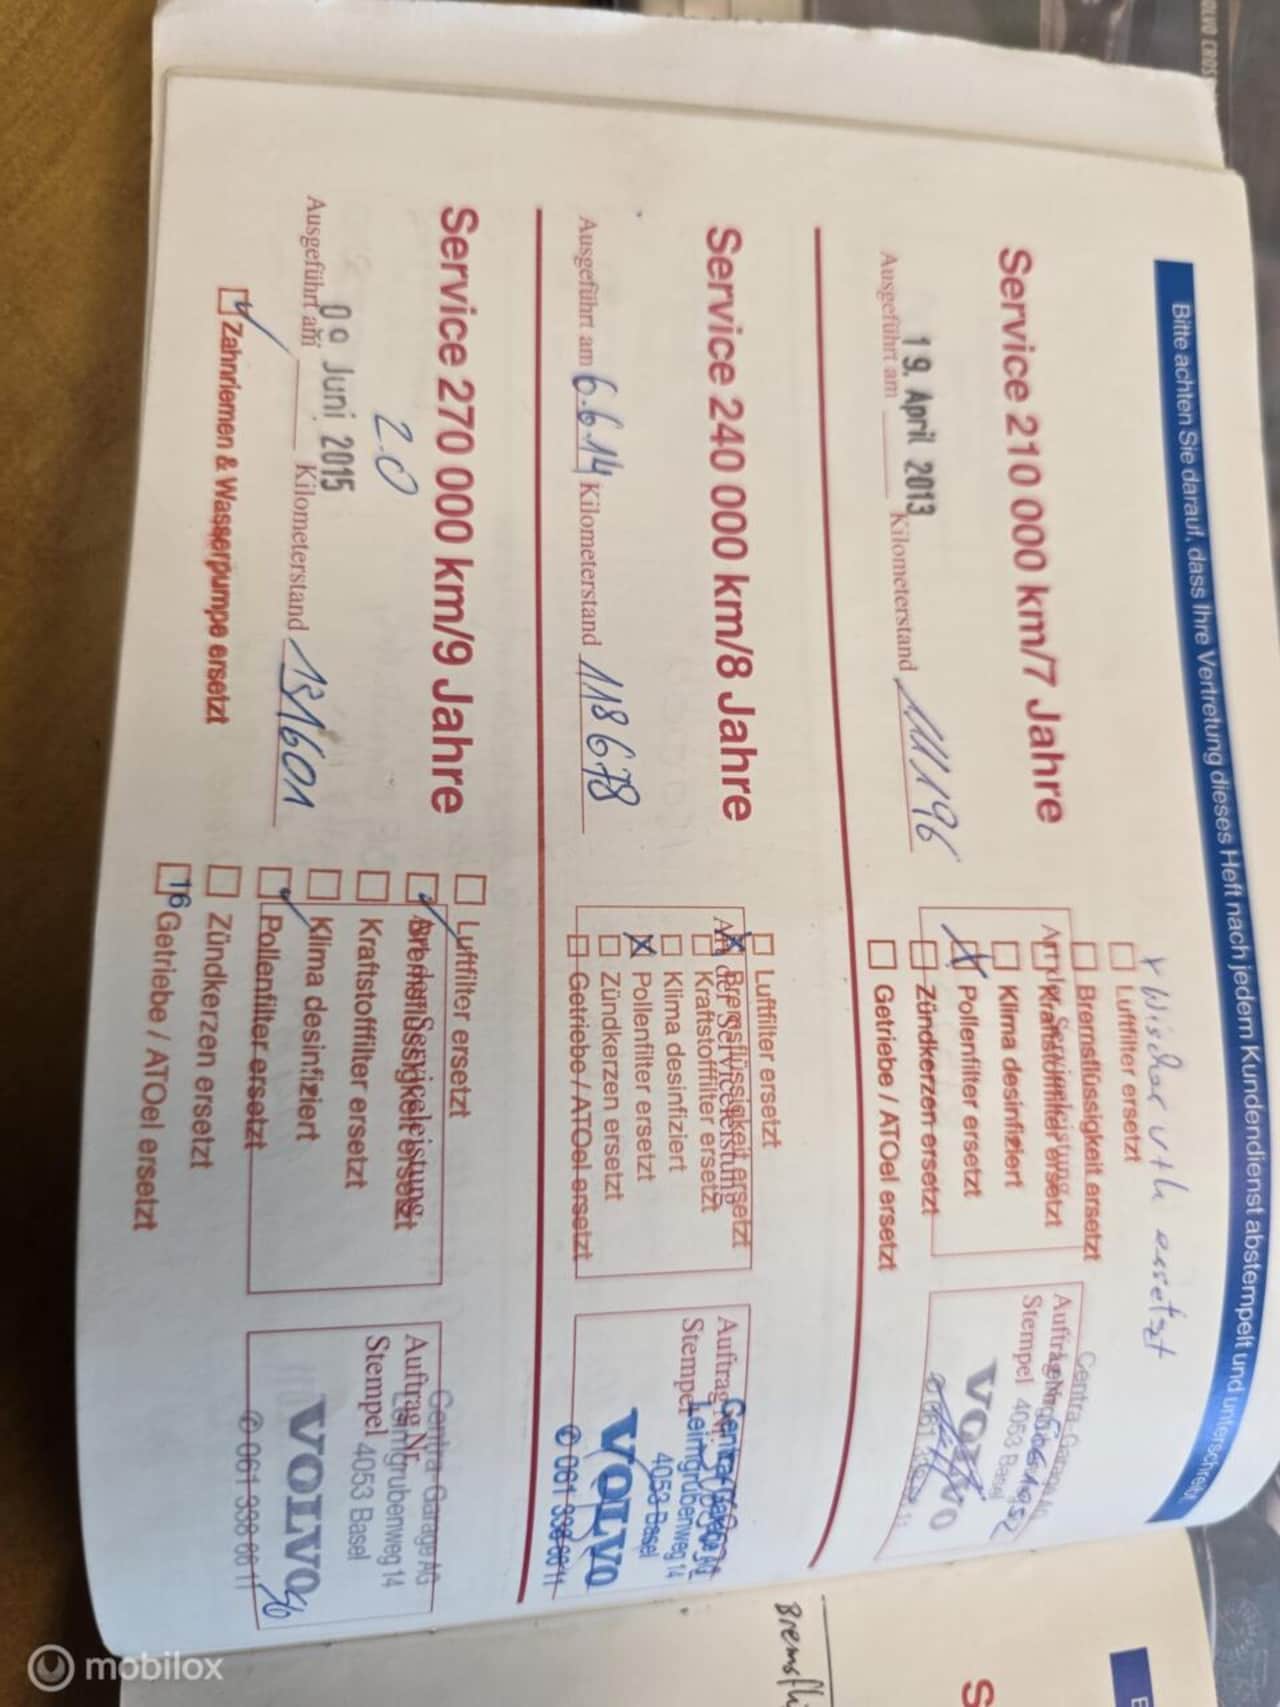 Bitte achten Sie darauf, dass Ihre Vertretung dieses Heft nach jedem Kundendienst abstempelt und unterschreibt
ersetzt
Service 210 000 km/7 Jahre
19. April 2013
Ausgeführt am Kilometerstand 111196
Luftfilter ersetzt
Bremsflüssigkeit ersetzt
Kraftstofffilter ersetzt
Klima desinfiziert
Pollenfilter ersetzt
Zündkerzen ersetzt
Getriebe / ATOel ersetzt
Centra Garage AG
Auftrag Nr.
Stempel 4053 Basel
VOLVO
Service 240 000 km/8 Jahre
Ausgeführt am 6.6.14 Kilometerstand 118678
Luftfilter ersetzt
Bremsflüssigkeit ersetzt
Art der Serviceleistung
Kraftstofffilter ersetzt
Klima desinfiziert
Pollenfilter ersetzt
Zündkerzen ersetzt
Getriebe / ATOel ersetzt
Auftrag Nr.
Centra Garage AG
Stempel Leimgrubenweg 14
4053 Basel
VOLVO
✆ 061 338 66 11
Service 270 000 km/9 Jahre
2.0
09 Juni 2015
Ausgeführt am Kilometerstand 131601
Zahnriemen & Wasserpumpe ersetzt
Luftfilter ersetzt
Bremsflüssigkeit ersetzt
Art der Serviceleistung
Kraftstofffilter ersetzt
Klima desinfiziert
Pollenfilter ersetzt
Zündkerzen ersetzt
16 Getriebe / ATOel ersetzt
Centra Garage AG
Auftrag Nr.
Leimgrubenweg 14
Stempel 4053 Basel
VOLVO
✆ 061 338 66 11
OLVO CROSS
Bremsflü
S
mobilox